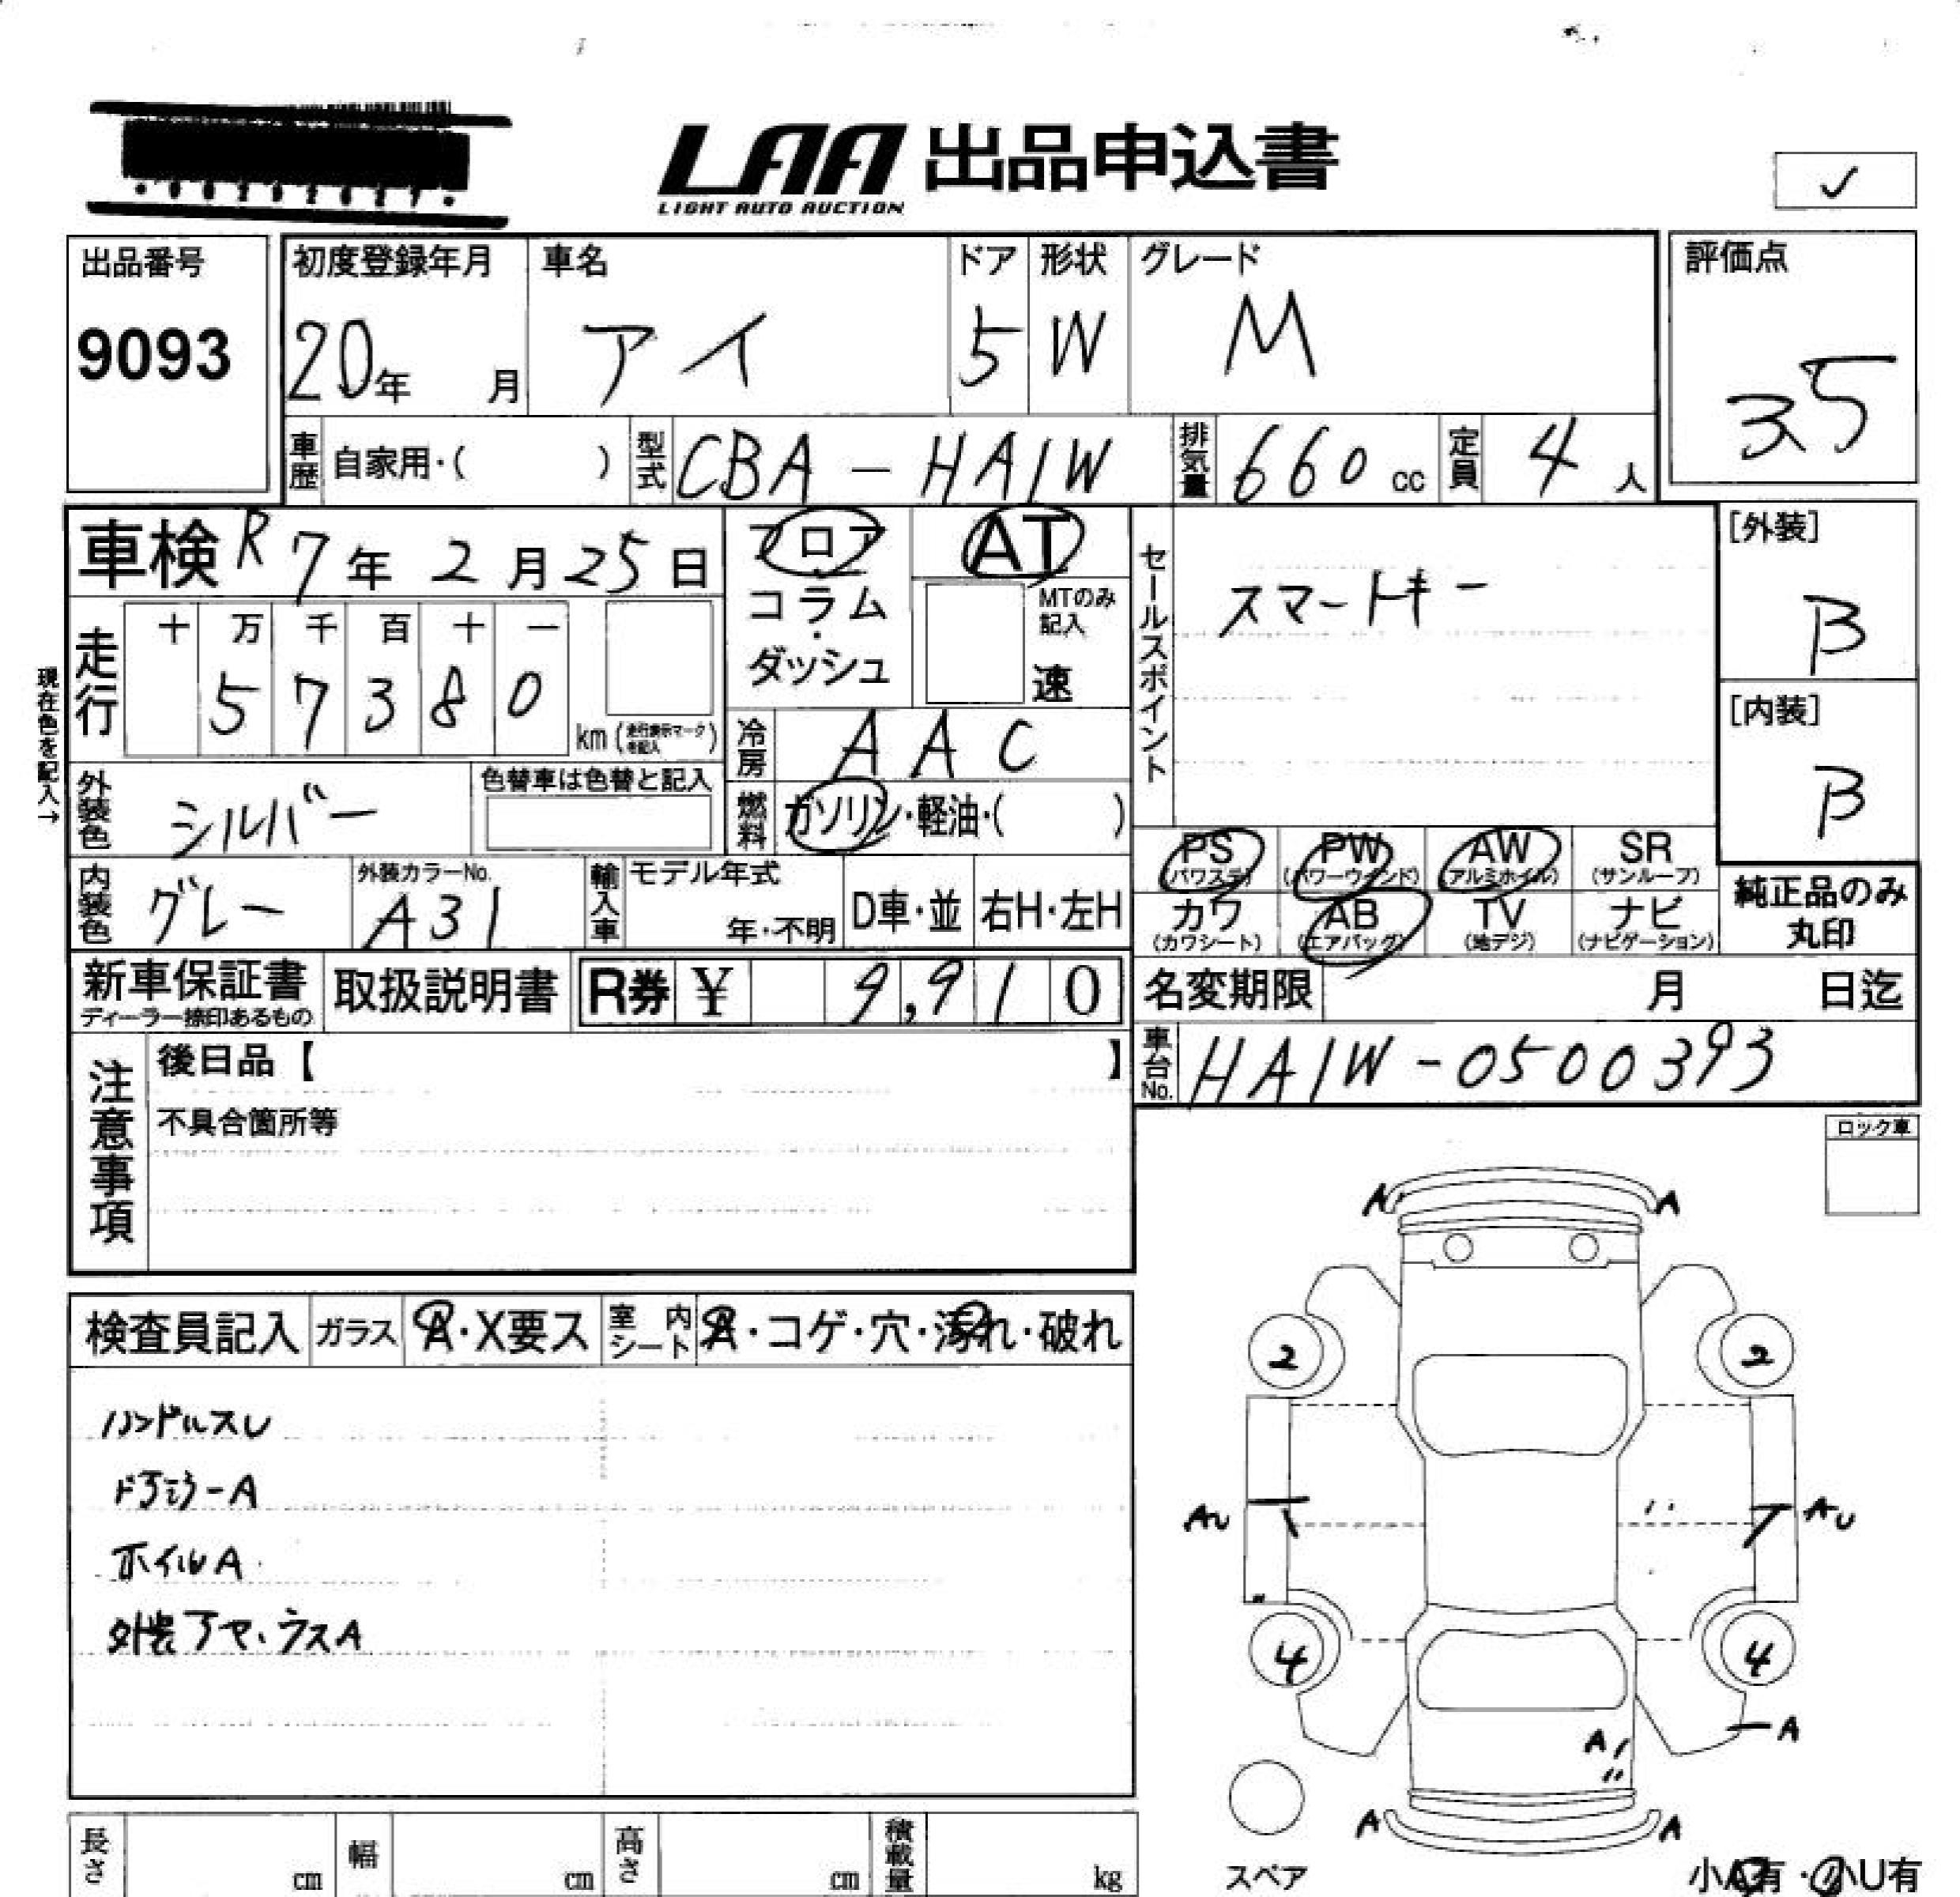 LAA 出品申込書
LIGHT AUTO AUCTION
✓
出品番号 初度登録年月 車名 ドア 形状 グレード 評価点
9093 20年 月 アイ 5 W M 35
車歴 自家用・( ) 型式 CBA-HA1W 排気量 660 cc 定員 4 人
車検 R 7年 2月 25日 フロア AT セールスポイント [外装]
コラム・ダッシュ MTのみ記入 速 スマートキー B
走行 十 万 千 百 十 一
5 7 3 8 0 km (走行表示マークを記入) [内装]
現在色を記入→ 冷房 AAC B
外装色 シルバー 色替車は色替と記入 燃料 ガソリン・軽油・( )
PS PW AW SR
(パワステ) (パワーウインド) (アルミホイル) (サンルーフ)
内装色 グレー 外装カラーNo. A31 輸入車 モデル年式 年・不明 D車・並 右H・左H
カワ AB TV ナビ 純正品のみ
(カワシート) (エアバッグ) (地デジ) (ナビゲーション) 丸印
新車保証書 取扱説明書 R券 ¥ 9,910 名変期限 月 日迄
ディーラー捺印あるもの
注意事項 後日品【 】 車台No. HA1W-0500393
不具合箇所等 ロック車
A A
検査員記入 ガラス A・X要ス 室内シート A・コゲ・穴・汚れ・破れ
2 2
ハンドルスレ
AU AU
ホイルA
4 4
外装 ウスA
A
A
A A
長さ cm 幅 cm 高さ cm 積載量 kg
スペア 小A有・小U有